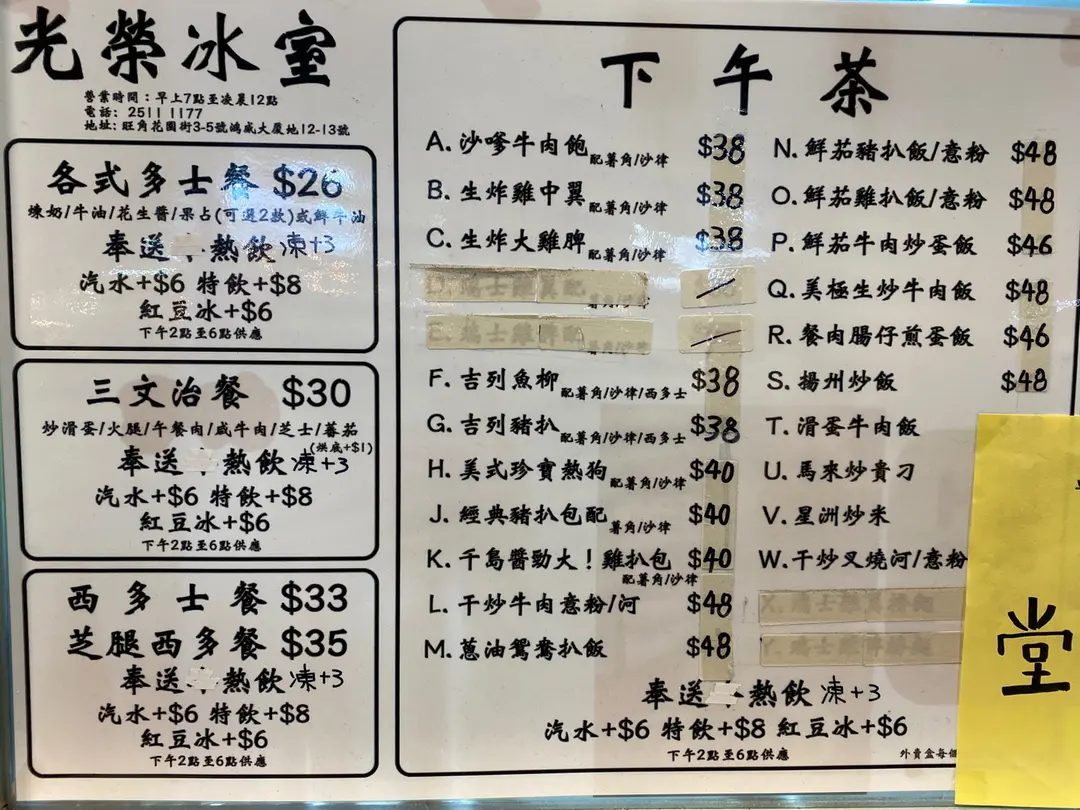 光榮冰室
營業時間：早上7點至凌晨12點
電話：2511 1177
地址：旺角花園街3-5號鴻威大廈地12-13號
各式多士餐 $26
煉奶/牛油/花生醬/果占(可選2款)或鮮牛油
奉送 熱飲 凍+3
汽水+$6 特飲+$8
紅豆冰+$6
下午2點至6點供應
三文治餐 $30
炒滑蛋/火腿/午餐肉/咸牛肉/芝士/蕃茄
(烘底+$1)
奉送 熱飲 凍+3
汽水+$6 特飲+$8
紅豆冰+$6
下午2點至6點供應
西多士餐 $33
芝腿西多餐 $35
奉送 熱飲 凍+3
汽水+$6 特飲+$8
紅豆冰+$6
下午2點至6點供應
下午茶
A. 沙嗲牛肉飽 配薯角/沙律 $38
B. 生炸雞中翼 配薯角/沙律 $38
C. 生炸大雞脾 配薯角/沙律 $38
F. 吉列魚柳 配薯角/沙律/西多士 $38
G. 吉列豬扒 配薯角/沙律/西多士 $38
H. 美式珍寶熱狗 配薯角/沙律 $40
J. 經典豬扒包配 薯角/沙律 $40
K. 千島醬勁大！雞扒包 $40
配薯角/沙律
L. 干炒牛肉意粉/河 $48
M. 蔥油鴛鴦扒飯 $48
N. 鮮茄豬扒飯/意粉 $48
O. 鮮茄雞扒飯/意粉 $48
P. 鮮茄牛肉炒蛋飯 $46
Q. 美極生炒牛肉飯 $48
R. 餐肉腸仔煎蛋飯 $46
S. 揚州炒飯 $48
T. 滑蛋牛肉飯
U. 馬來炒貴刁
V. 星洲炒米
W. 干炒叉燒河/意粉
奉送 熱飲 凍+3
汽水+$6 特飲+$8 紅豆冰+$6
下午2點至6點供應
外賣盒每個
堂